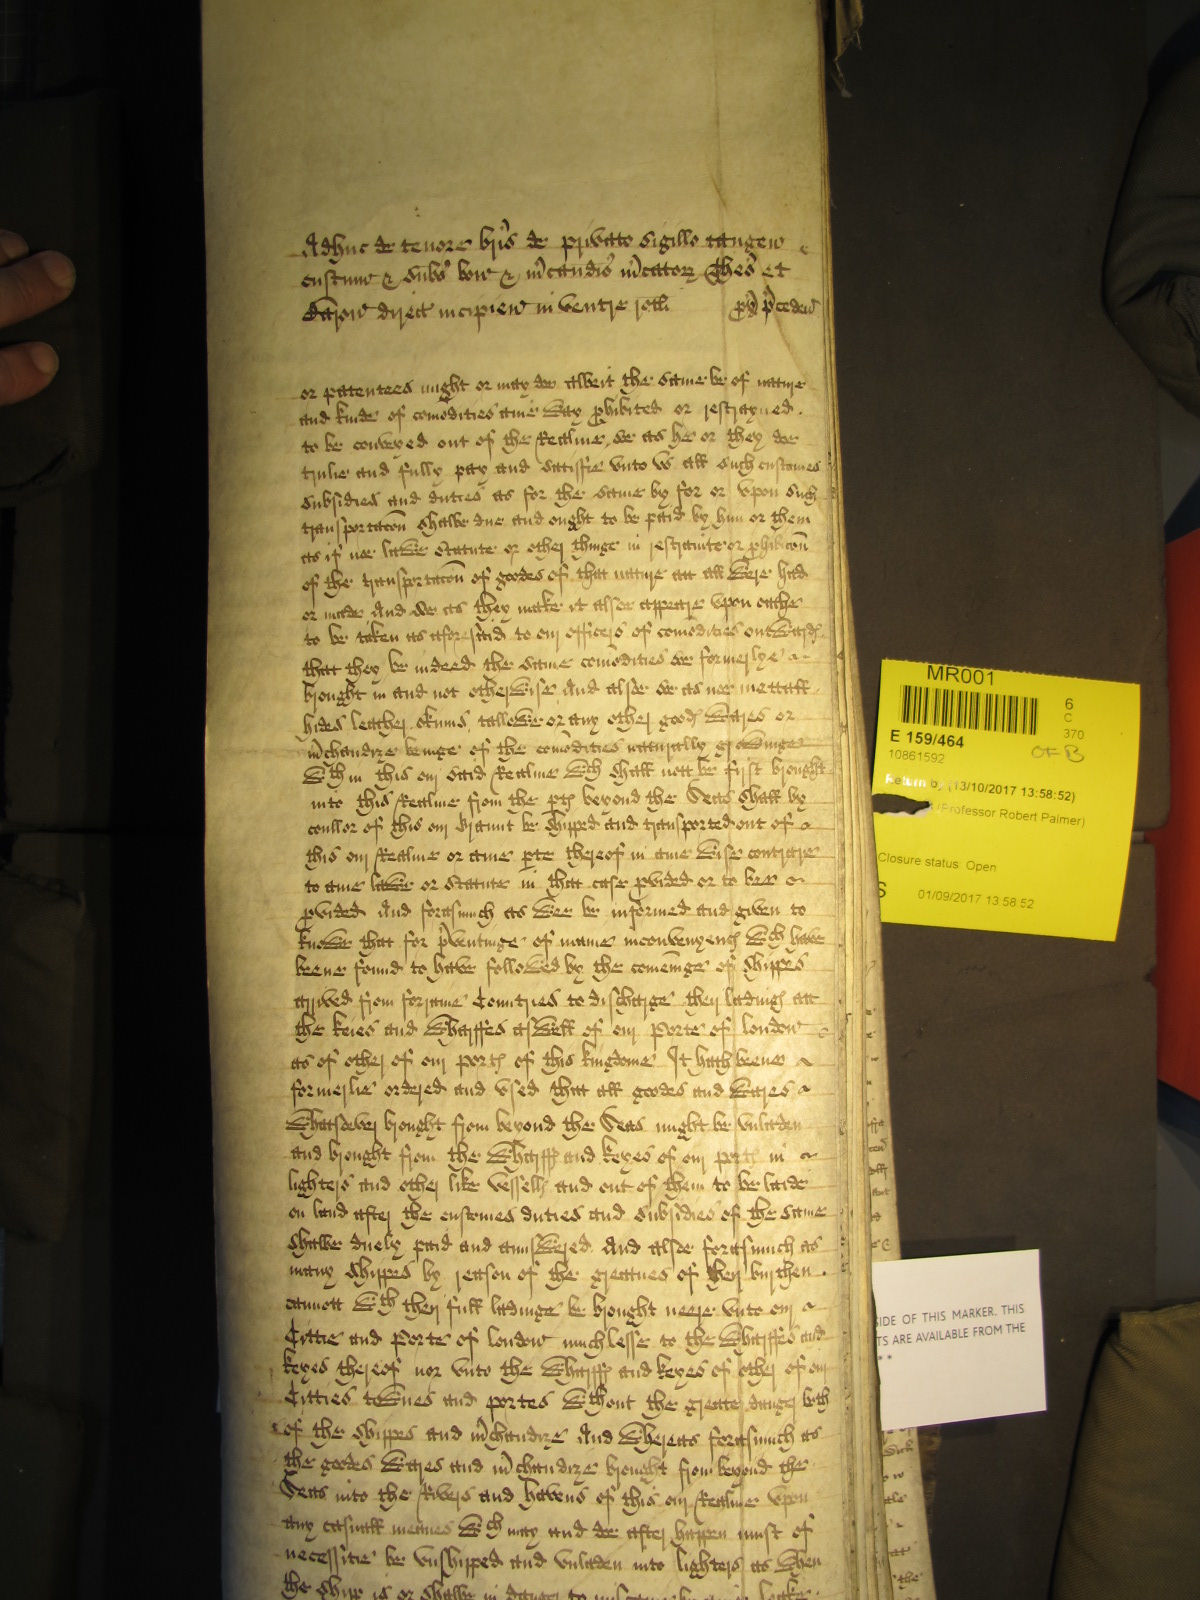 Adhuc de tenore bris de privato sigillo tangen
custum & subs bon & mcandis mcator Thes et
Baron direct incipien in ventre rotli px pceden
or patentees might or may doe albeit the same be of nature
and kinde of comodities anie way phibited or restrayned
to be conveyed out of the Realme, soe as he or they doe
trulie and fully pay and satisfie unto us all such customes
subsidies and duties as for the same by for or upon such
transportacon shalbe due and ought to be paid by him or them
as if noe lawe statute or other thinge in restrainte or phibicon
of the transportacon of goodes of that nature att all were had
or made And soe as they make it alsoe appeare upon oathe
to be taken as aforesaid to our officers of comodities outwards
that they be indeed the same comodities soe formerlye
brought in and not otherwise And alsoe soe as noe mettall
hides leather skinns tallowe or any other goods wares or
mchandize beinge of the comodities naturally growinge
wthin this our said Realme wch shall nott be first brought
into this Realme from the pts beyond the Seas shall by
coullor of this our graunt be shipped and transported out of
this our Realme or anie pte thereof in anie wise contrarie
to anie lawe or statute in that case pvided or to bee
pvided And forasmuch as wee be informed and given to
knowe that for pventinge of manie inconvenyencs wch have
beene found to have followed by the cominge of shippes
arrived from forraine Countries to discharge their ladings att
the keies and wharffes aswell of our Porte of London
as of other of our ports of this kingdome It hath beene
formerlie ordered and used that all goodes and wares
whatsoever brought from beyond the Seas might be unladen
and brought from the wharffs and keyes of our ports in
lighters and other like vessells and out of them to be laide
on land after the customes duties and subsidies of the same
shalbe duely paid and answered And alsoe forasmuch as
many shippes by reason of the greatnes of their burthen
cannott wth their full ladinge be brought neere unto our
Cittie and Porte of London much lesse to the wharffes and
keyes thereof nor unto the wharffs and keyes of other of our
Citties townes and portes wthout the greate danger both
of the shippes and mchandize And whereas forasmuch as
the goodes wares and mchandize brought from beyond the
Seas into the Rivers and havens of this our Realme upon
any casuall meanes wch may and doe after happen must of
necessitie be unshipped and unladen into lighters as when
the shipp is or shalbe in danger to
MR001
6
C
370
E 159/464
OF B
10861592
Return by (13/10/2017 13:58:52)
(Professor Robert Palmer)
Closure status: Open
S
01/09/2017 13:58:52
SIDE OF THIS MARKER. THIS
TS ARE AVAILABLE FROM THE
* *